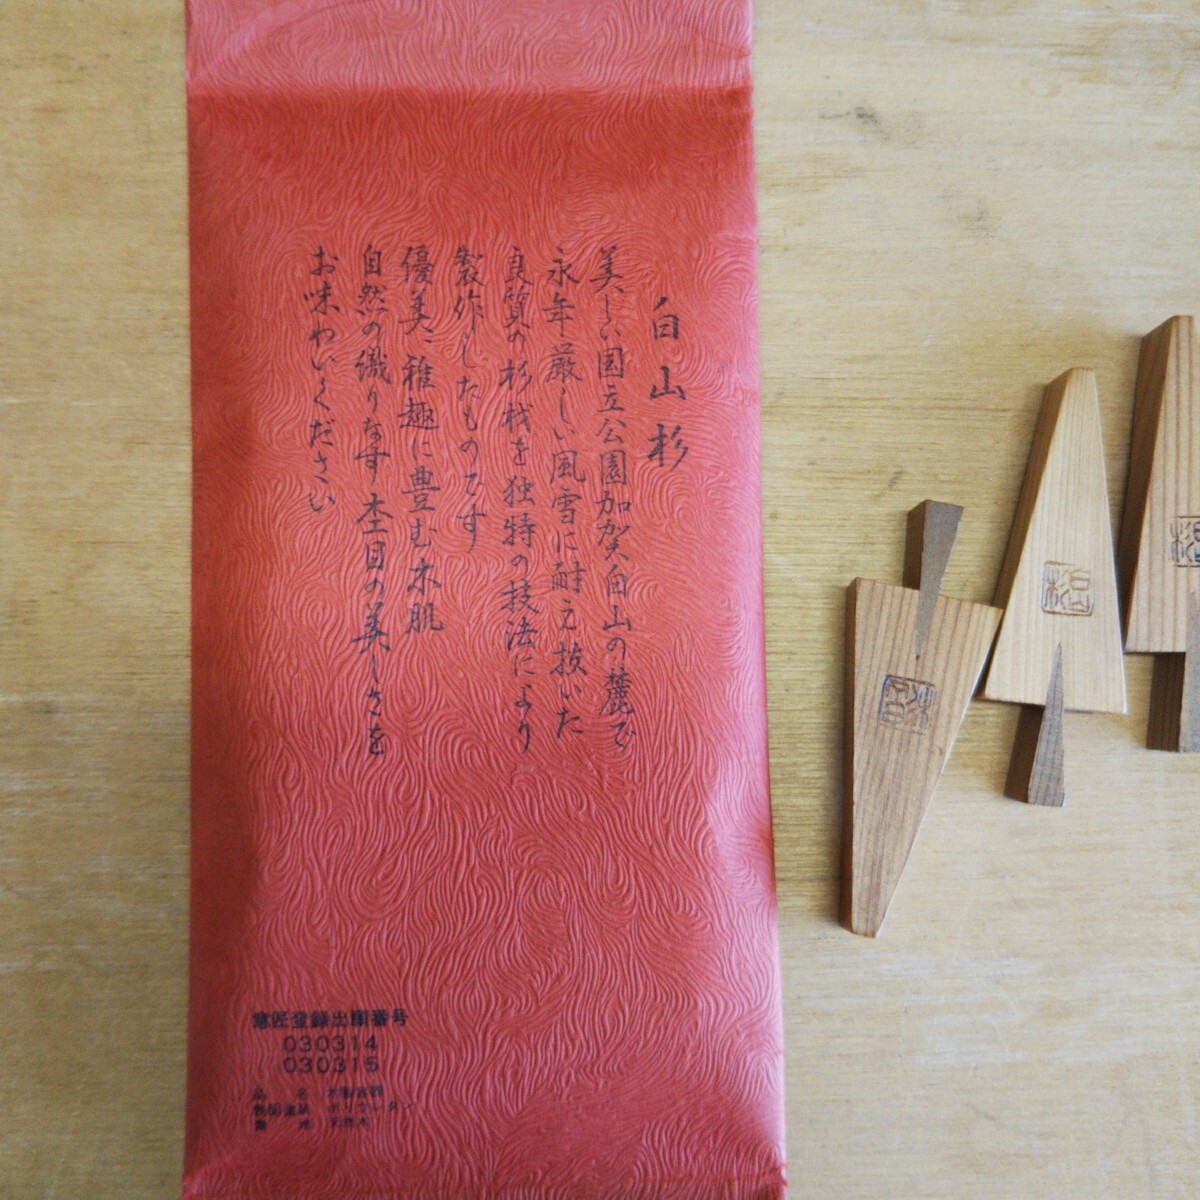 白山杉
美しい国立公園加賀白山の麓で
永年厳しい風雪に耐え抜いた
良質の杉材を独特の技法により
製作したものです
優美、稚趣に豊む木肌
自然の織りなす杢目の美しさを
お味わいください
意匠登録出願番号
030314
030315
品名
表面塗装 ポリウレタン
素地 天然木